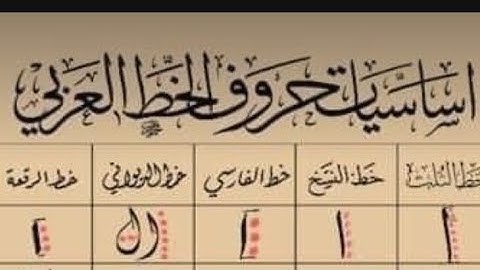 اساسيات حروف الخط العربي
خط الثلث خط النسخ خط الفارسي خط الديواني خط الرقعة
ا ا ا ا ا